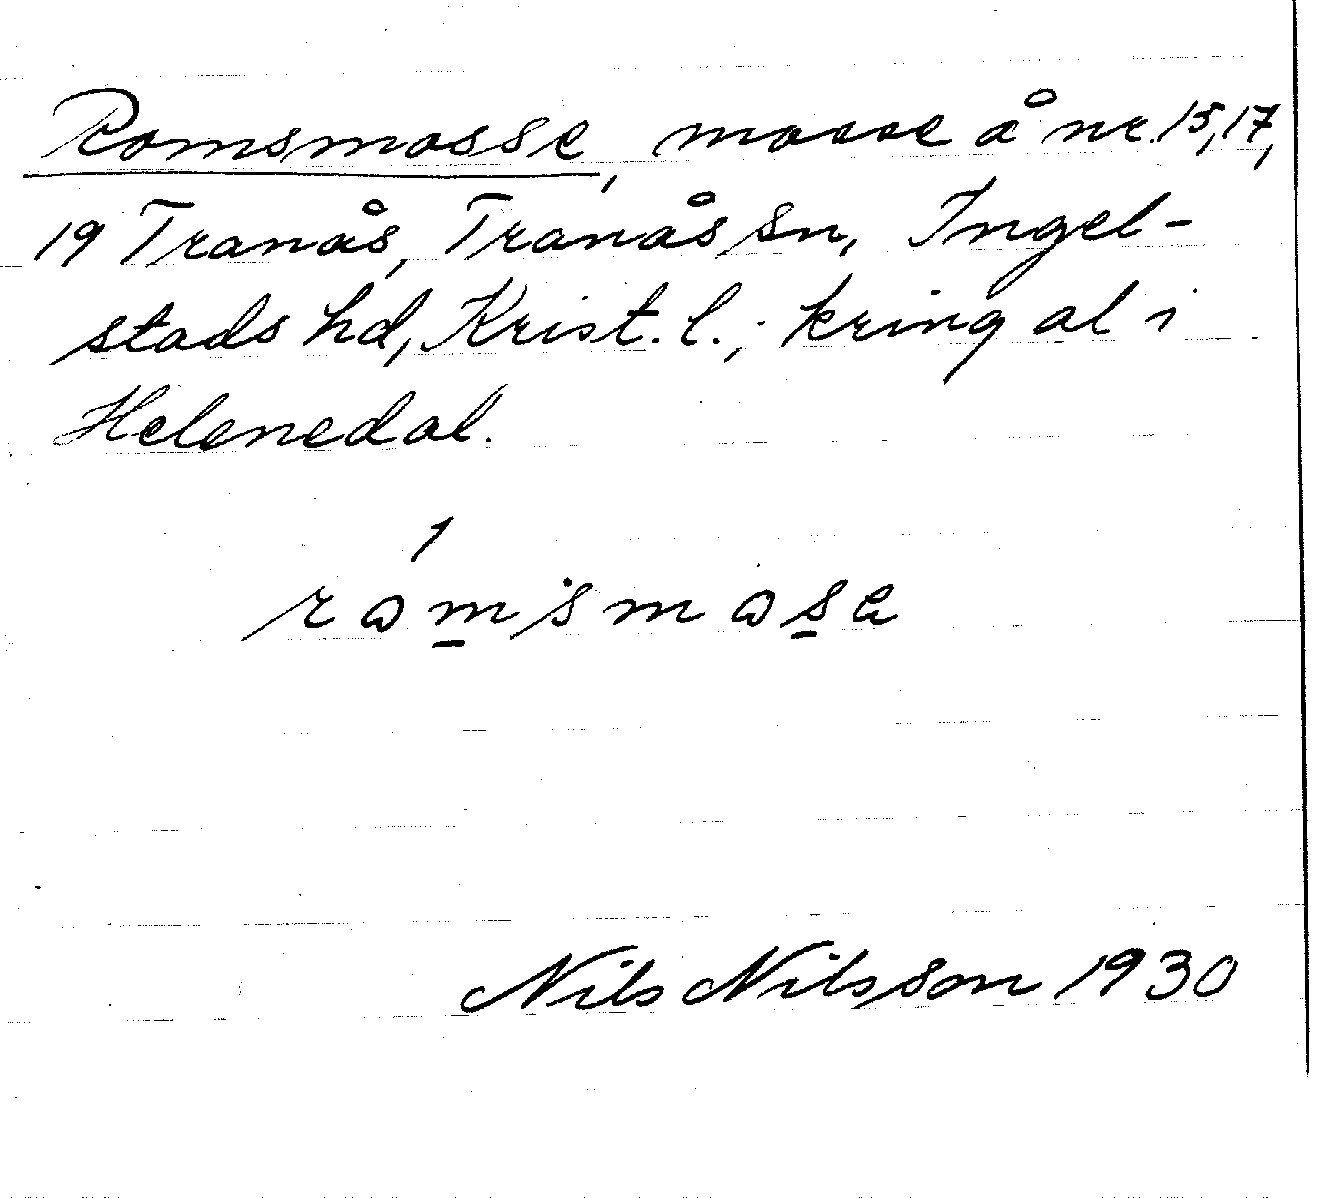 Romsmosse, mosse å nr. 15, 17,
19 Tranås, Tranås sn, Ingel-
stads hd, Krist. l.; kring al i
Helenedal.
1
romsmosa
Nils Nilsson 1930